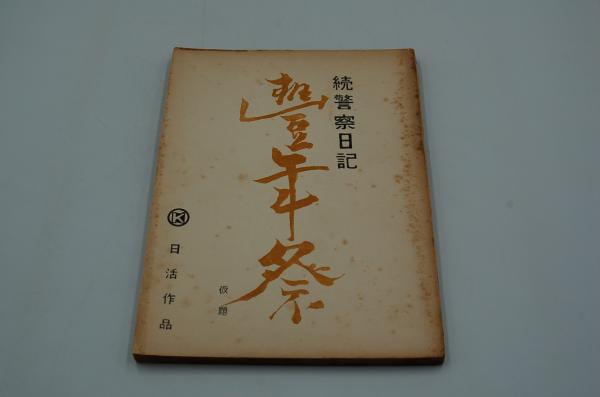 続警察日記
豊年祭
仮題
日活作品